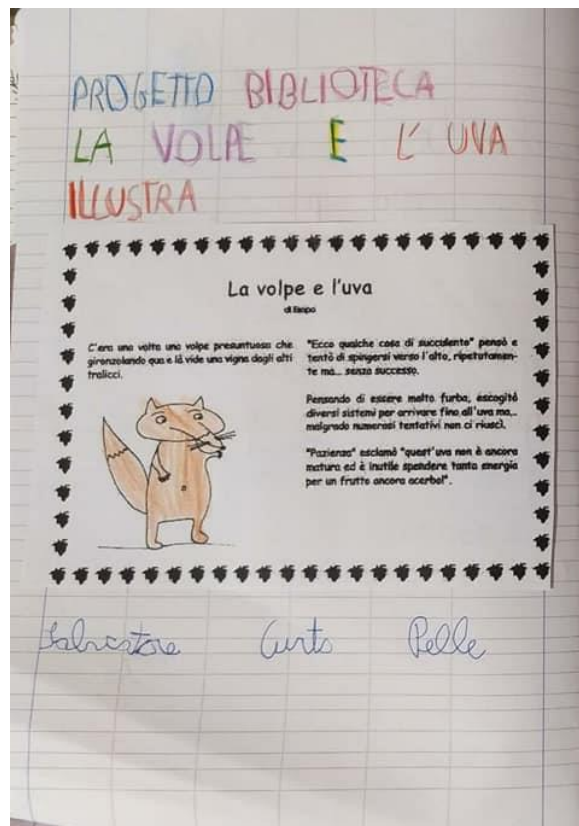 PROGETTO BIBLIOTECA
LA VOLPE E L' UVA
ILLUSTRA
La volpe e l'uva
di Esopo
C'era una volta una volpe presuntuosa che
gironzolando qua e là vide una vigna dagli alti
tralicci.
"Ecco qualche cosa di succulento" pensò e
tentò di spingersi verso l'alto, ripetutamen-
te ma... senza successo.
Pensando di essere molto furba, escogitò
diversi sistemi per arrivare fino all'uva ma...
malgrado numerosi tentativi non ci riuscì.
"Pazienza" esclamò "quest'uva non è ancora
matura ed è inutile spendere tanta energia
per un frutto ancora acerbo!".
Salvatore Curto Pelle